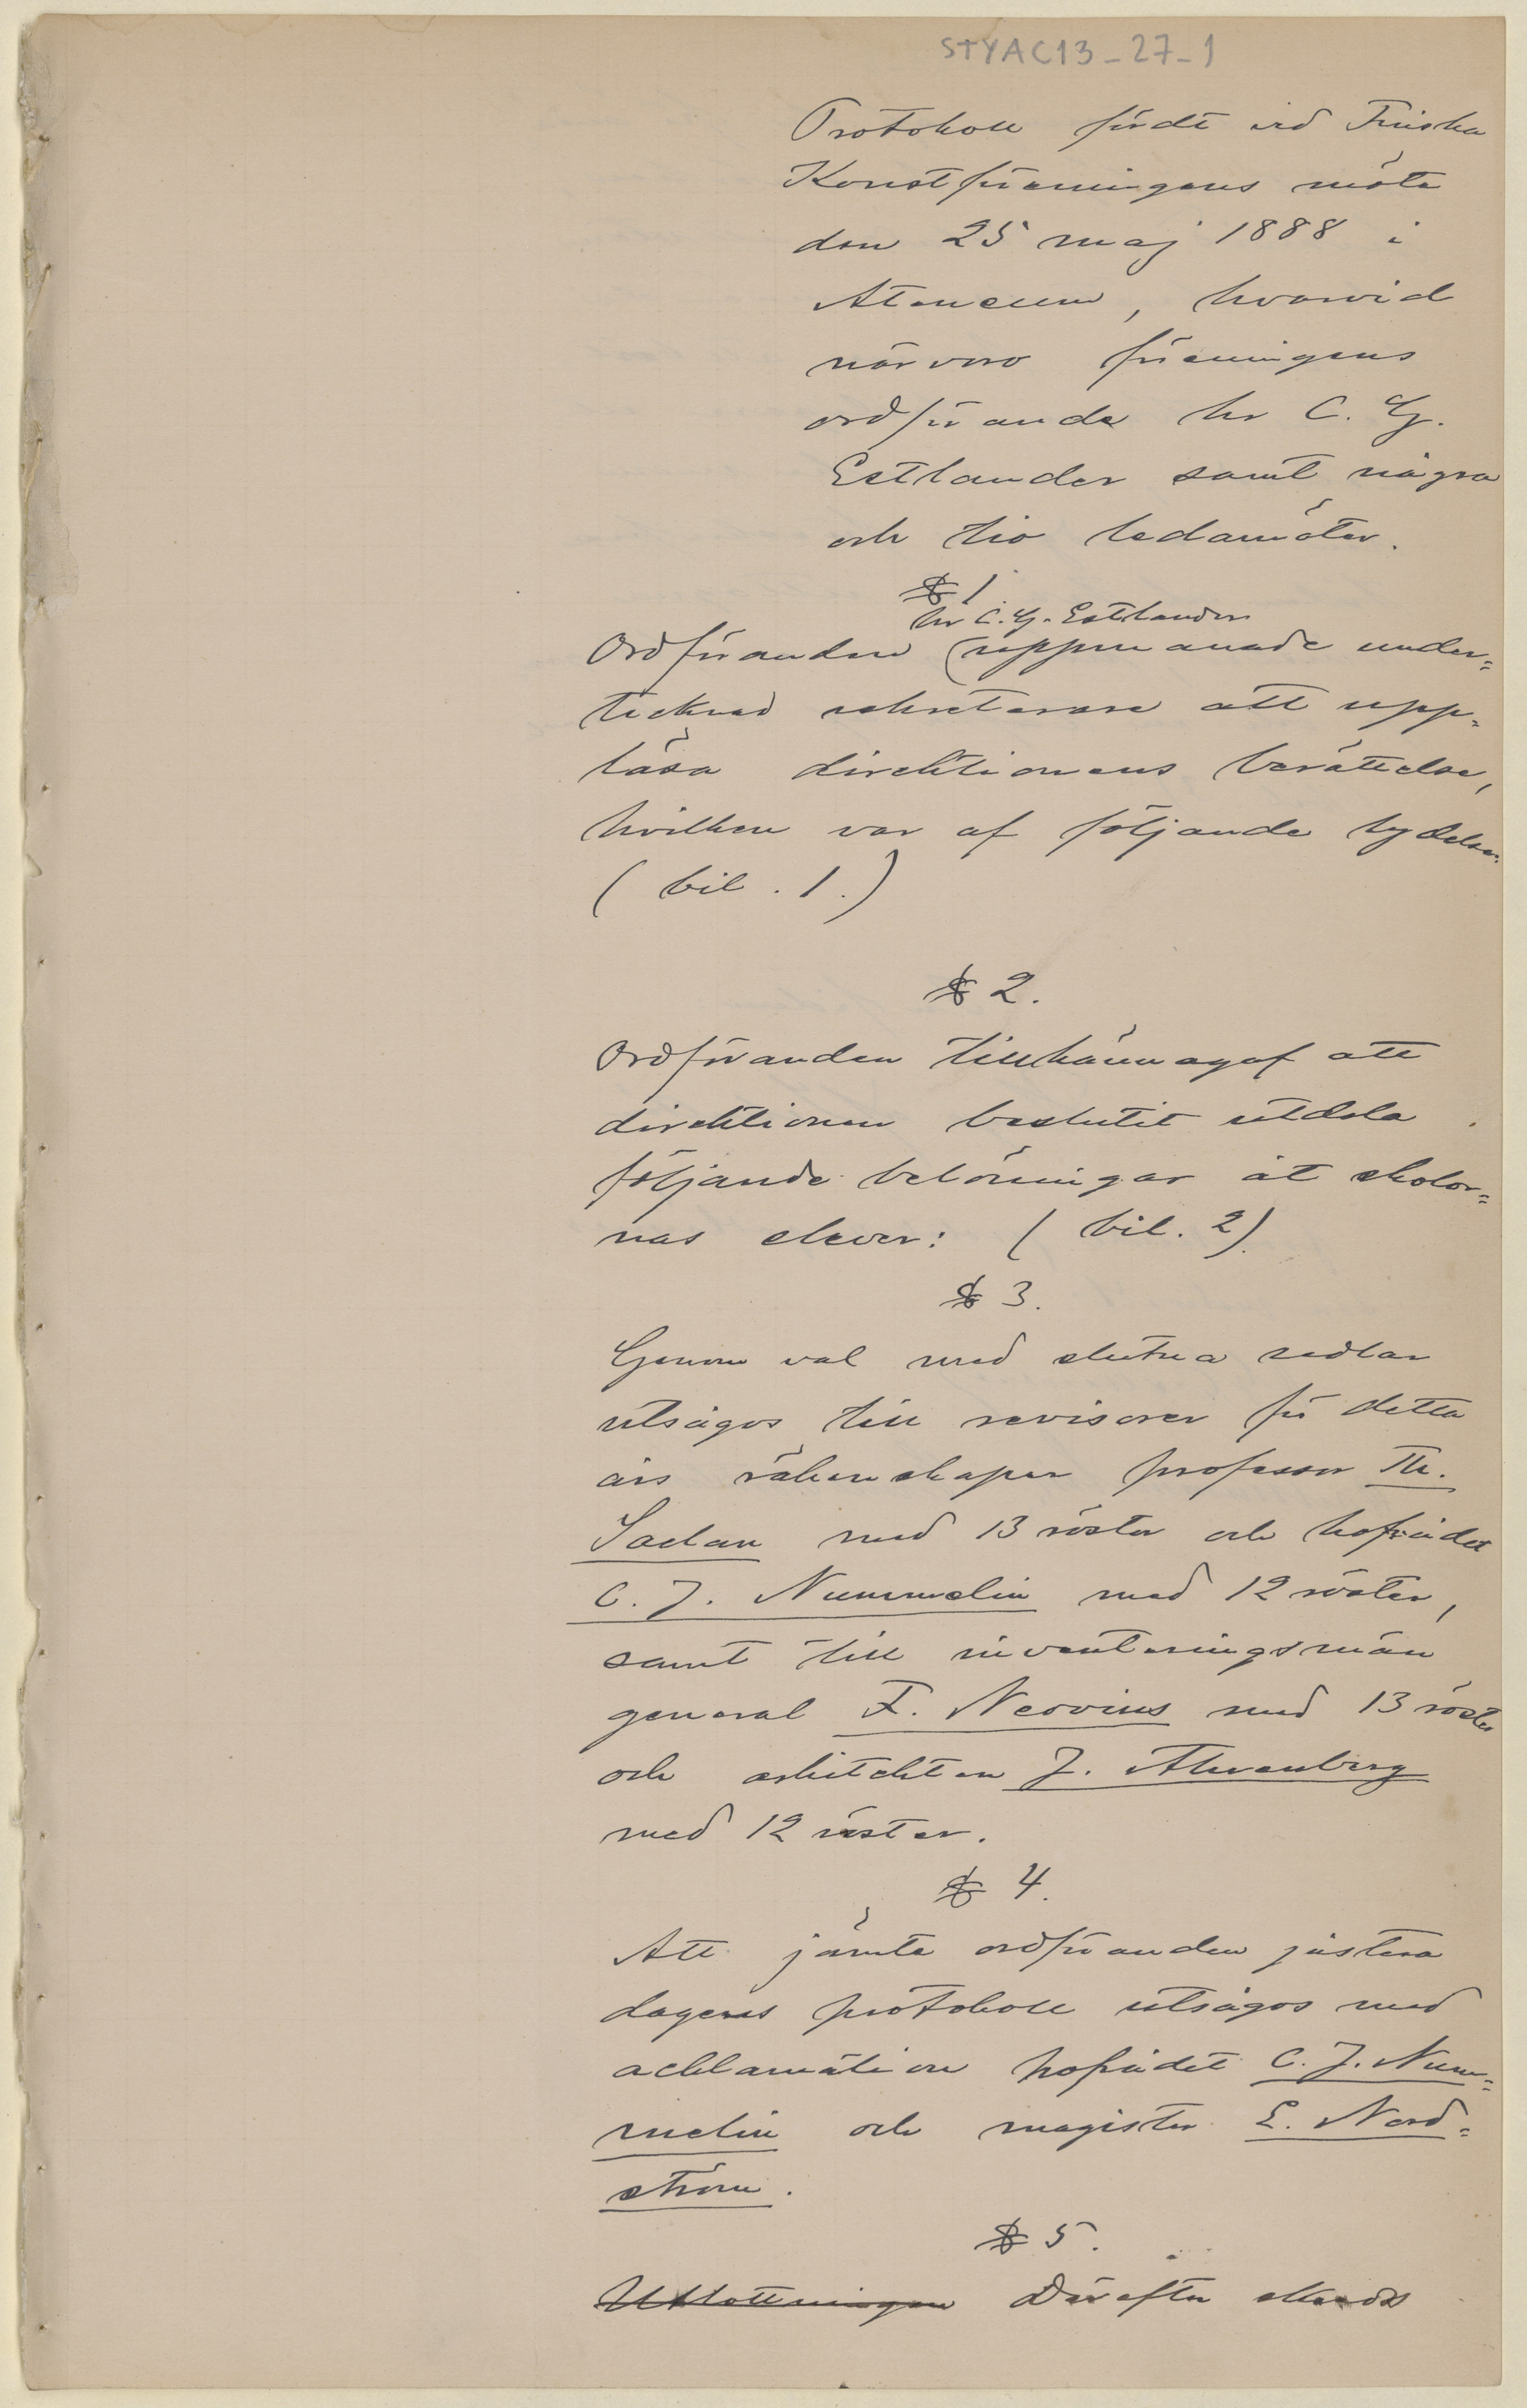 STYAC13_27_1
Protokoll fördt vid Finska
Konstföreningens möte
den 25 maj 1888 i
Ateneum, hvarvid
närvoro föreningens
ordförande hr C. G.
Estlander samt några
och tio ledamöter.
§ 1.
hr C. G. Estlander
Ordföranden (uppmanade under=
tecknad sekreterare att upp=
läsa direktionens berättelse,
hvilken var af följande lydelse:
( bil. 1.)
§ 2.
Ordföranden tillkännagaf att
direktionen beslutit utdela
följande belöningar åt skolor=
nas elever: ( bil. 2).
§ 3.
Genom val med slutna sedlar
utsågos till revisorer för detta
års räkenskaper professor Th.
Saelan med 13 röster och hofrådet
C. J. Nummelin med 12 röster,
samt till inventeringsmän
general F. Neovius med 13 röster
och arkitekten J. Ahrenberg
med 12 röster.
§ 4.
Att jämte ordföranden justera
dagens protokoll utsågos med
acklamation hofrådet C. J. Num=
melin och magister E. Nord=
ström.
§ 5.
Utlottningen Därefter skedde